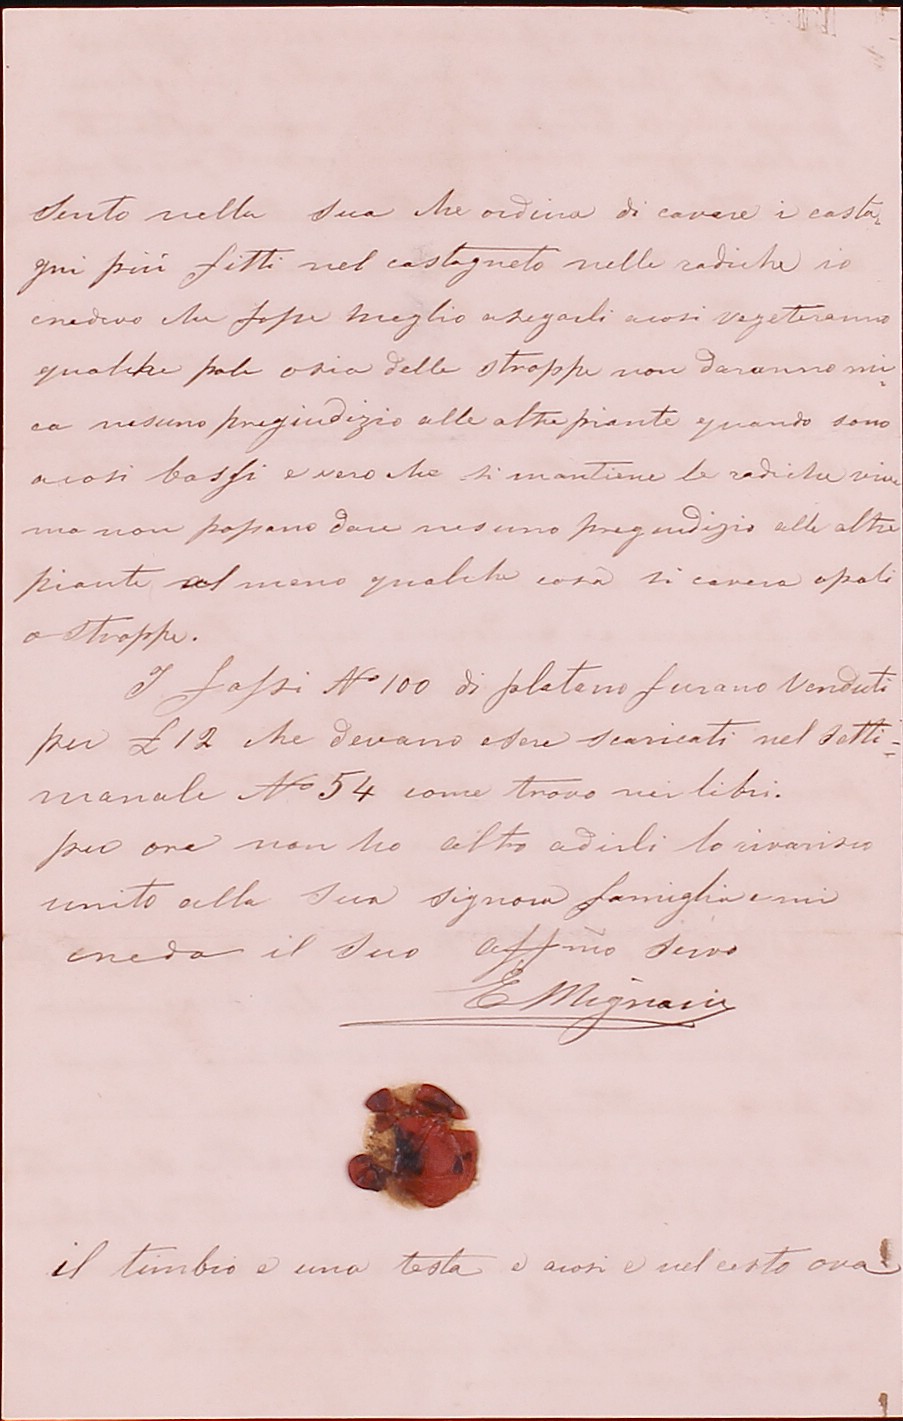 Sento nella sua che ordina di cavare i casta=
gni più fitti nel castagneto nelle radiche io
credevo che fosse meglio asegarli acosi vegeteranno
qualche pale osia delle stroppe non daranno mi=
ca nesuno pregiudizio alle altre piante quando sono
acosi bassi e vero che si mantiene le radiche vive
ma non possano dare nesuno pregudizio alle altre
piante al meno qualche cosa si cavera opali
o stroppe.
I fassi No 100 di platano furano venduti
per £ 12 che devano esere scaricati nel setti=
manale No 54 come trovo nei libri.
per ora non ho altro adirli lo riverisco
unito alla sua signora famiglia e mi
creda il suo affmo servo
E Mignani
il timbro e una testa e acosi e nel cesto ova